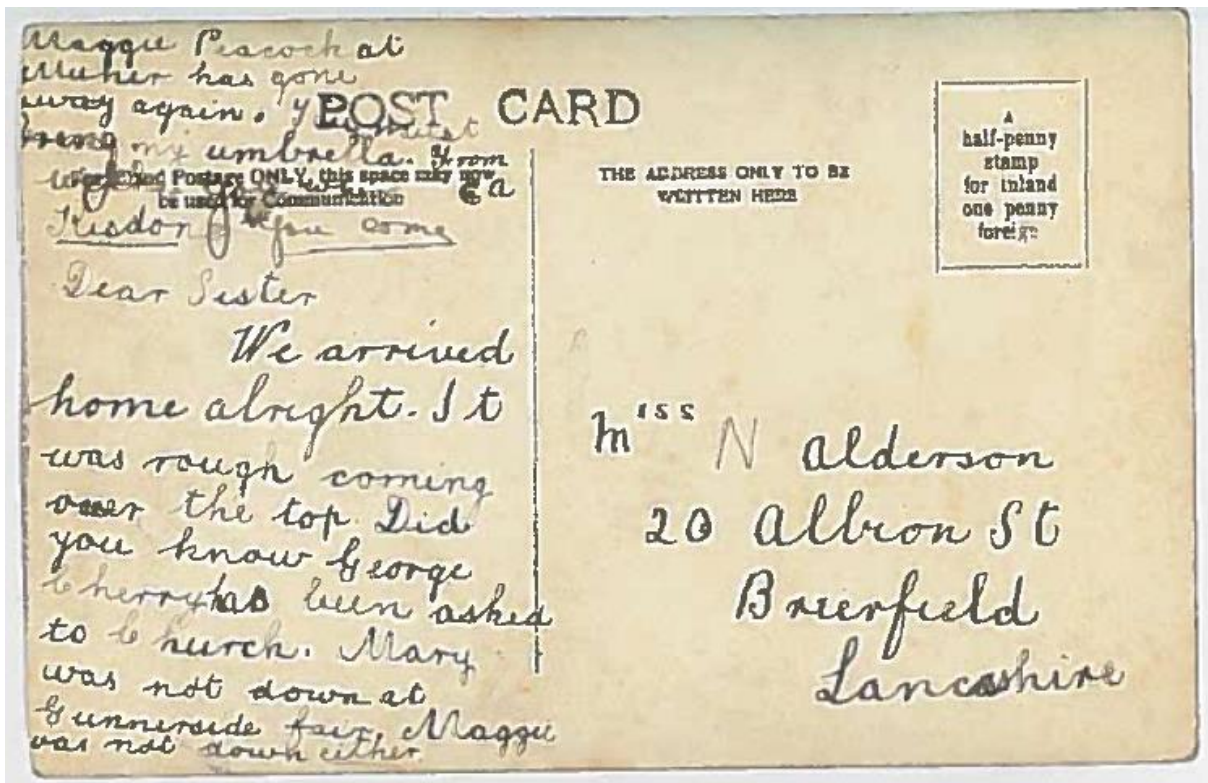 Maggie Peacock at
Muker has gone
away again. You must
bring my umbrella. From
when you E a
Kisdon you come
POST CARD
For Inland Postage ONLY, this space may now
be used for Communication
THE ADDRESS ONLY TO BE
WRITTEN HERE
A
half-penny
stamp
for inland
one penny
foreign
Dear Sister
We arrived
home alright. It
was rough coming
over the top. Did
you know George
Cherry has been asked
to Church. Mary
was not down at
Gunnerside fair, Maggie
was not down either
Miss N Alderson
20 Albion St
Brierfield
Lancashire